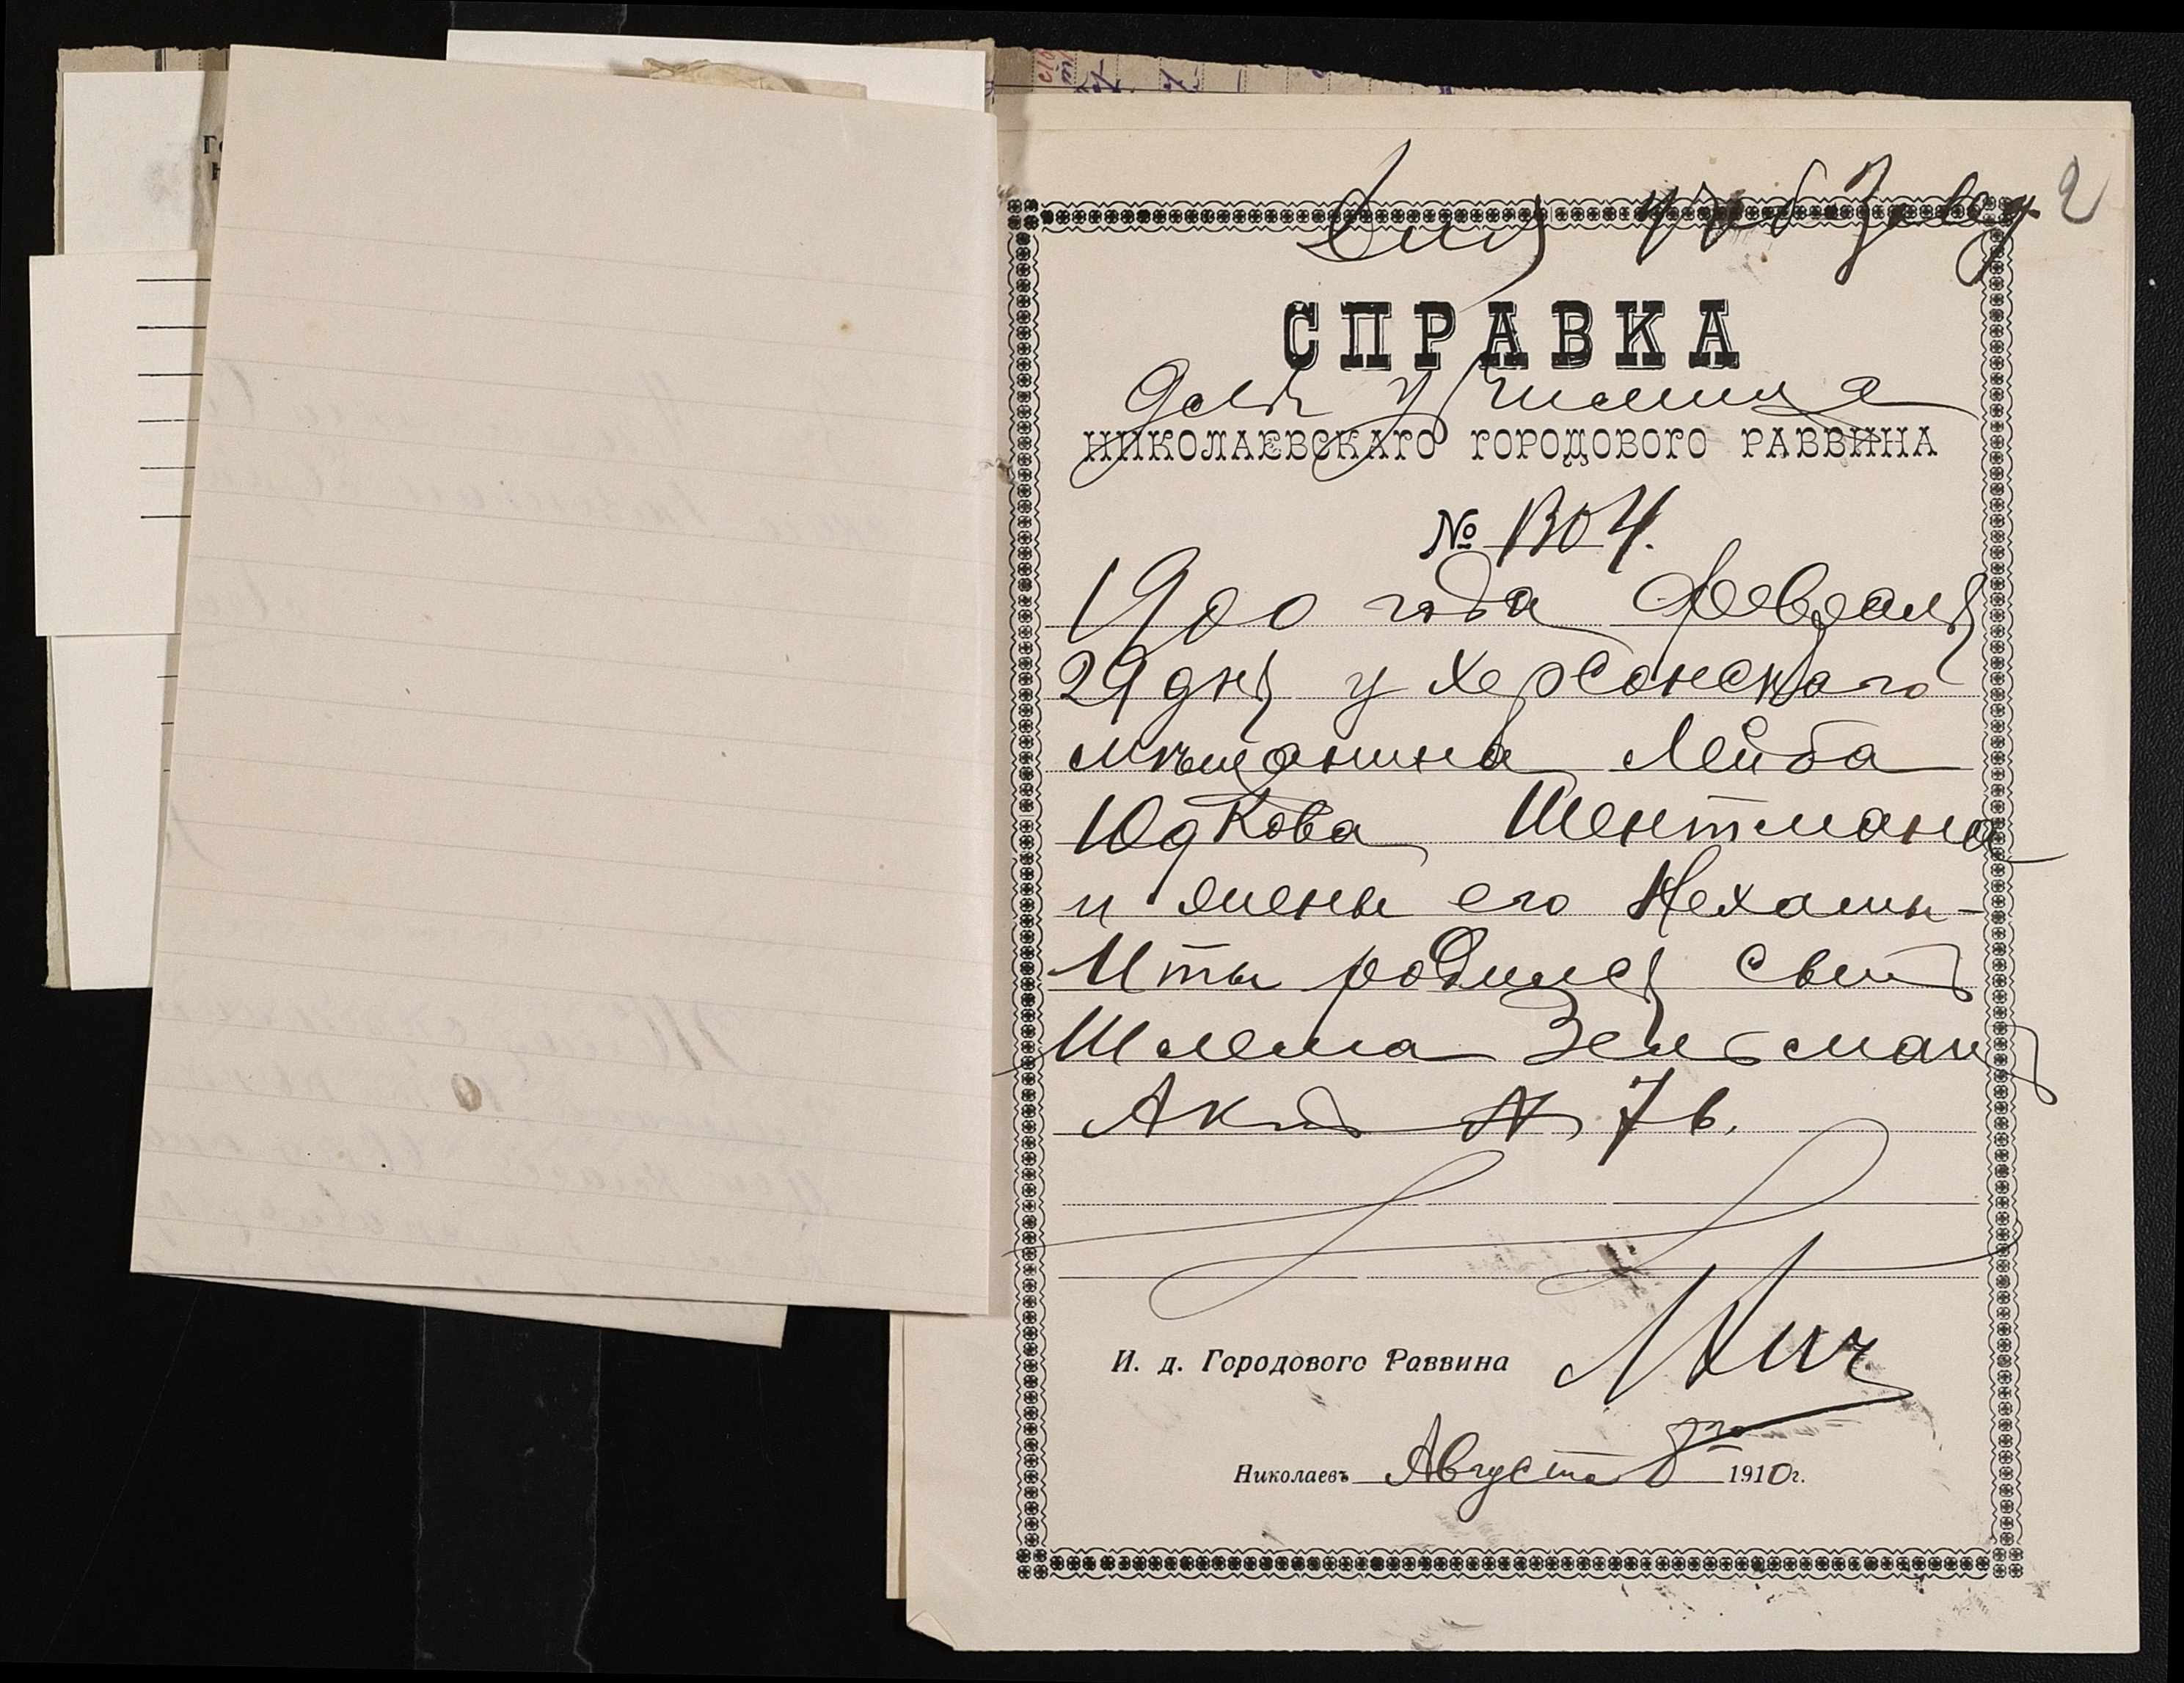 2
Для учеб. Завед.
СПРАВКА
для училища
НИКОЛАЕВСКАГО ГОРОДОВОГО РАВВИНА
№ 1304.
1900 года Февраля
29 дня у Херсонскаго
мѣщанина Лейба
Юдкова Шентмана
и жены его Нехамы-
Иты родился сынъ
Шлема Зельманъ
Актъ № 76.
И. д. Городового Раввина
Николаевъ Августа 8го 1910г.